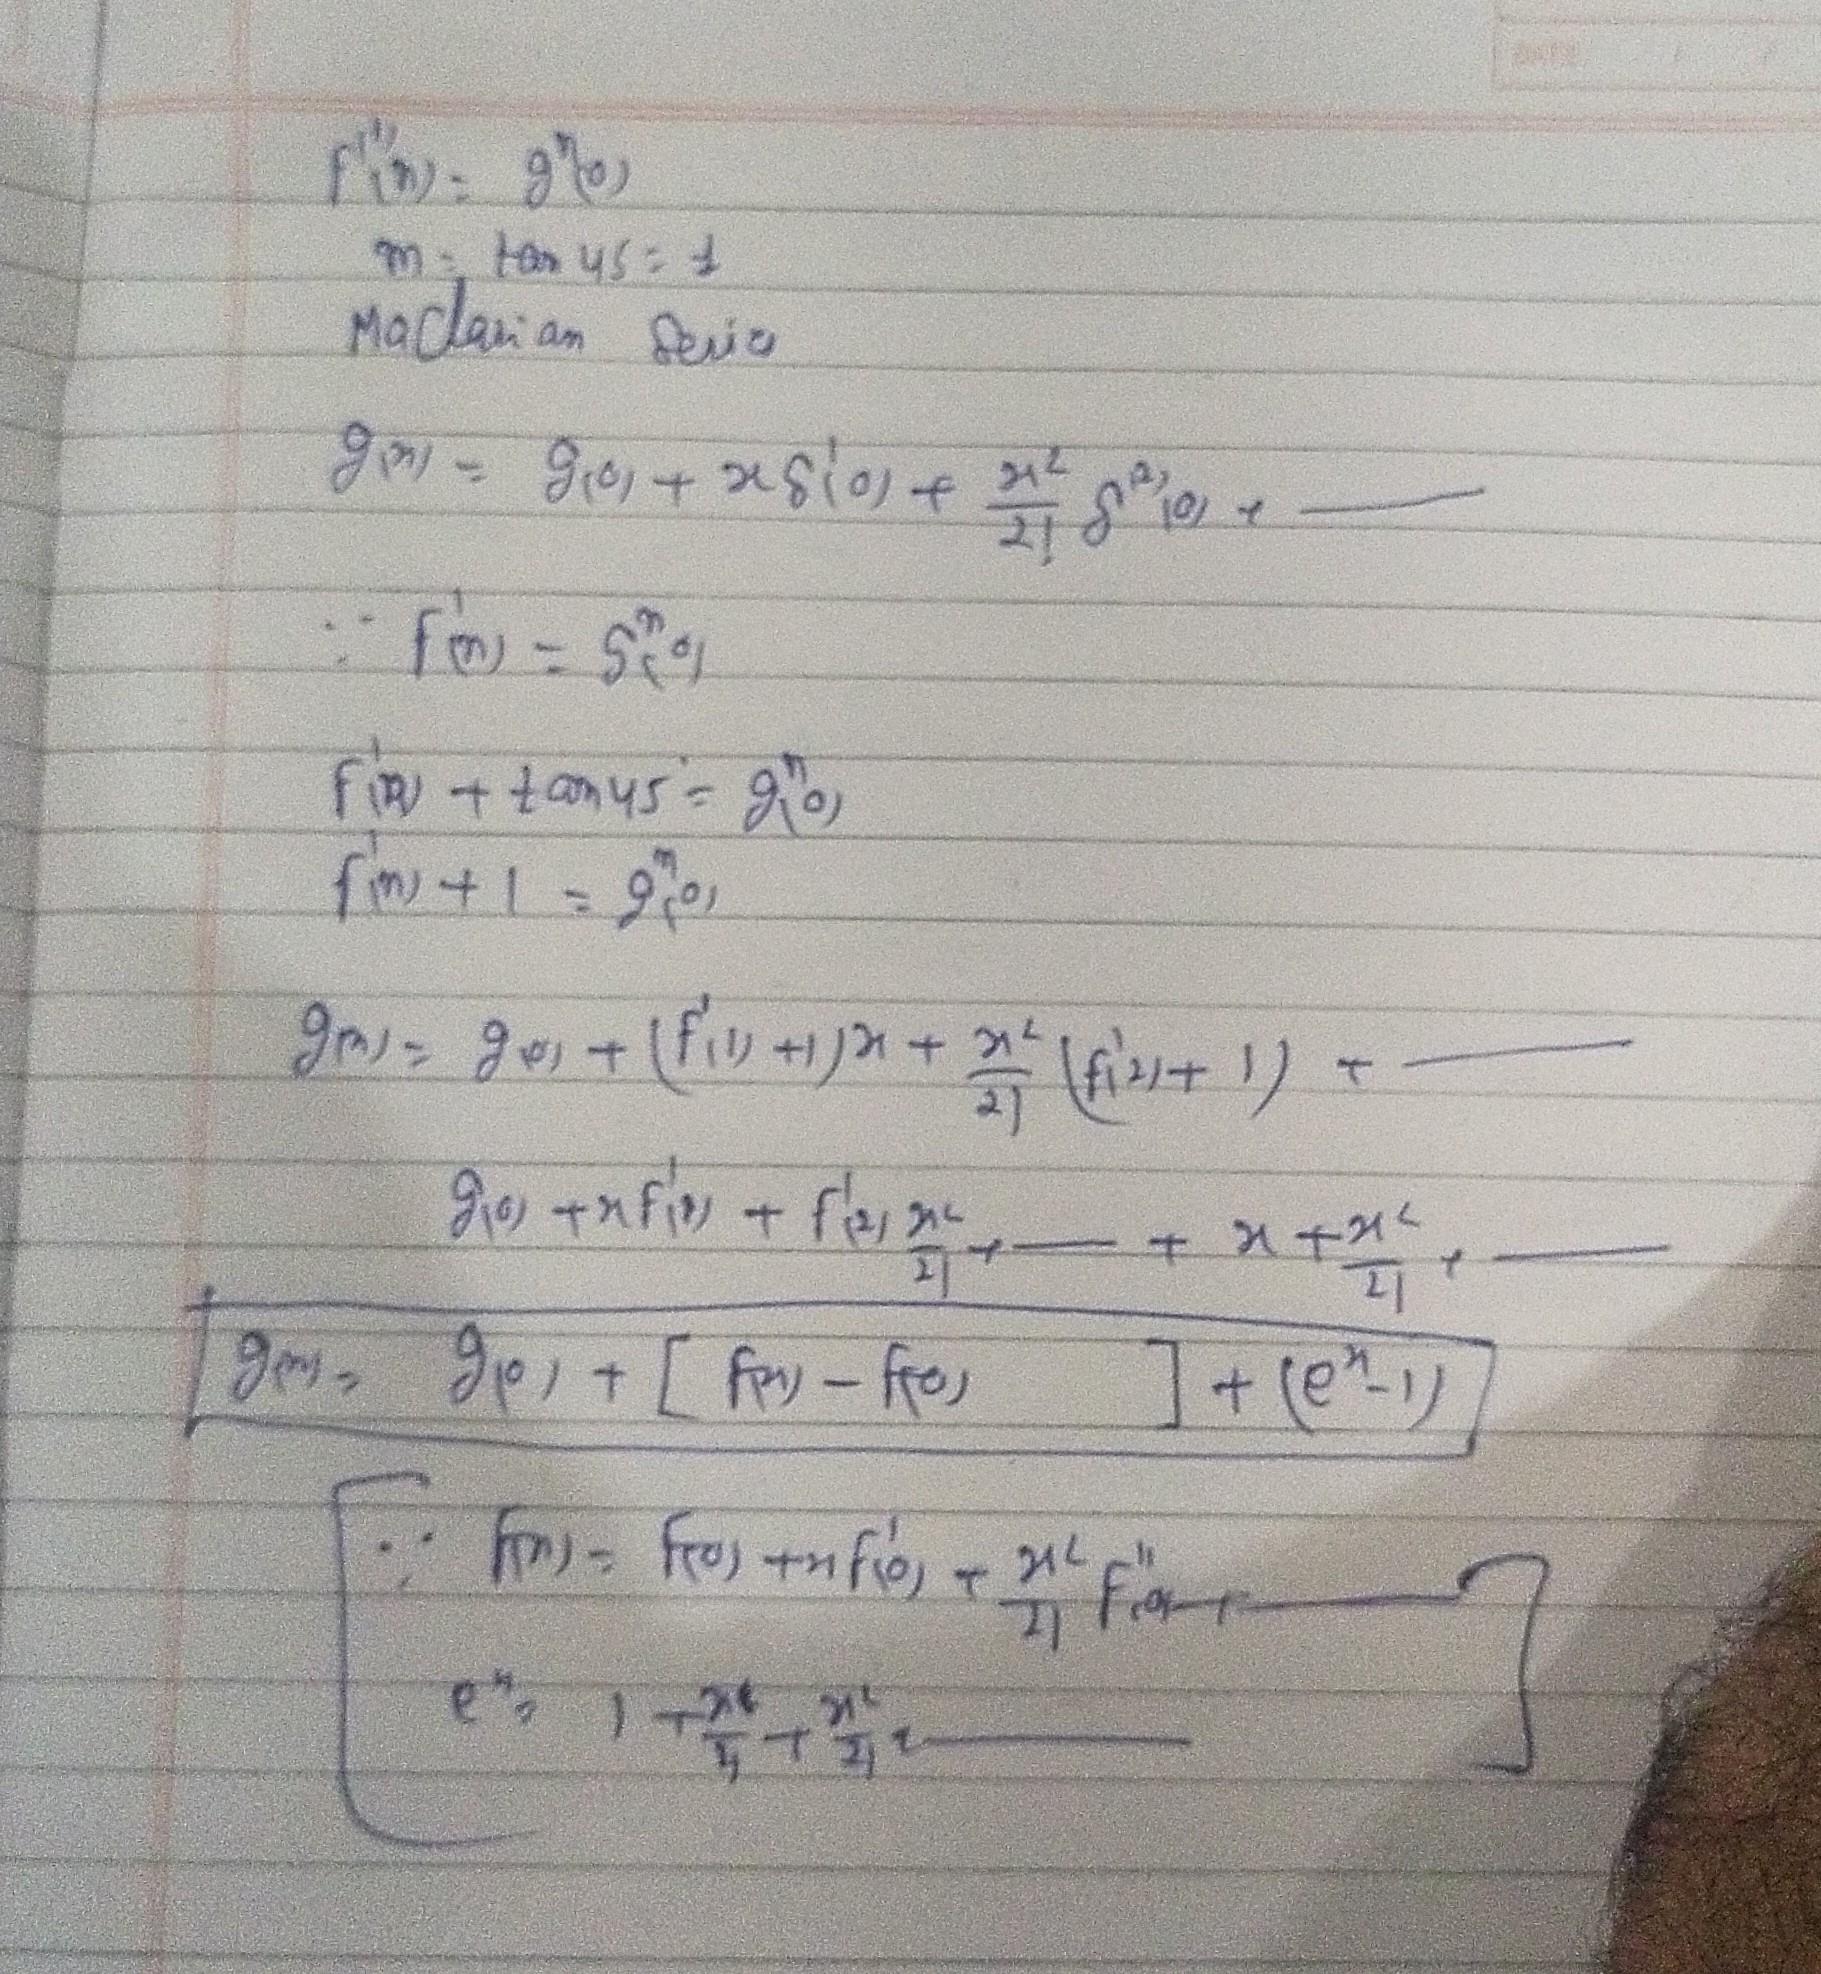 f'(n) = gⁿ(0)
m = tan 45 = 1
Maclarian Series
g(x) = g(0) + x g'(0) + x²/2! g⁽²⁾(0) + ——
∵ f'(n) = gⁿ(0)
f'(n) + tan 45° = gⁿ(0)
f'(n) + 1 = gⁿ(0)
g(x) = g(0) + (f'(1) + 1)x + x²/2! (f'(2) + 1) + ——
g(0) + x f'(1) + f'(2) x²/2! + —— + x + x²/2! + ——
g(x) = g(0) + [ f(x) – f(0) ] + (eˣ - 1)
∵ f(x) = f(0) + x f'(0) + x²/2! f''(0) + ——
eˣ = 1 + x/1! + x²/2! + ——